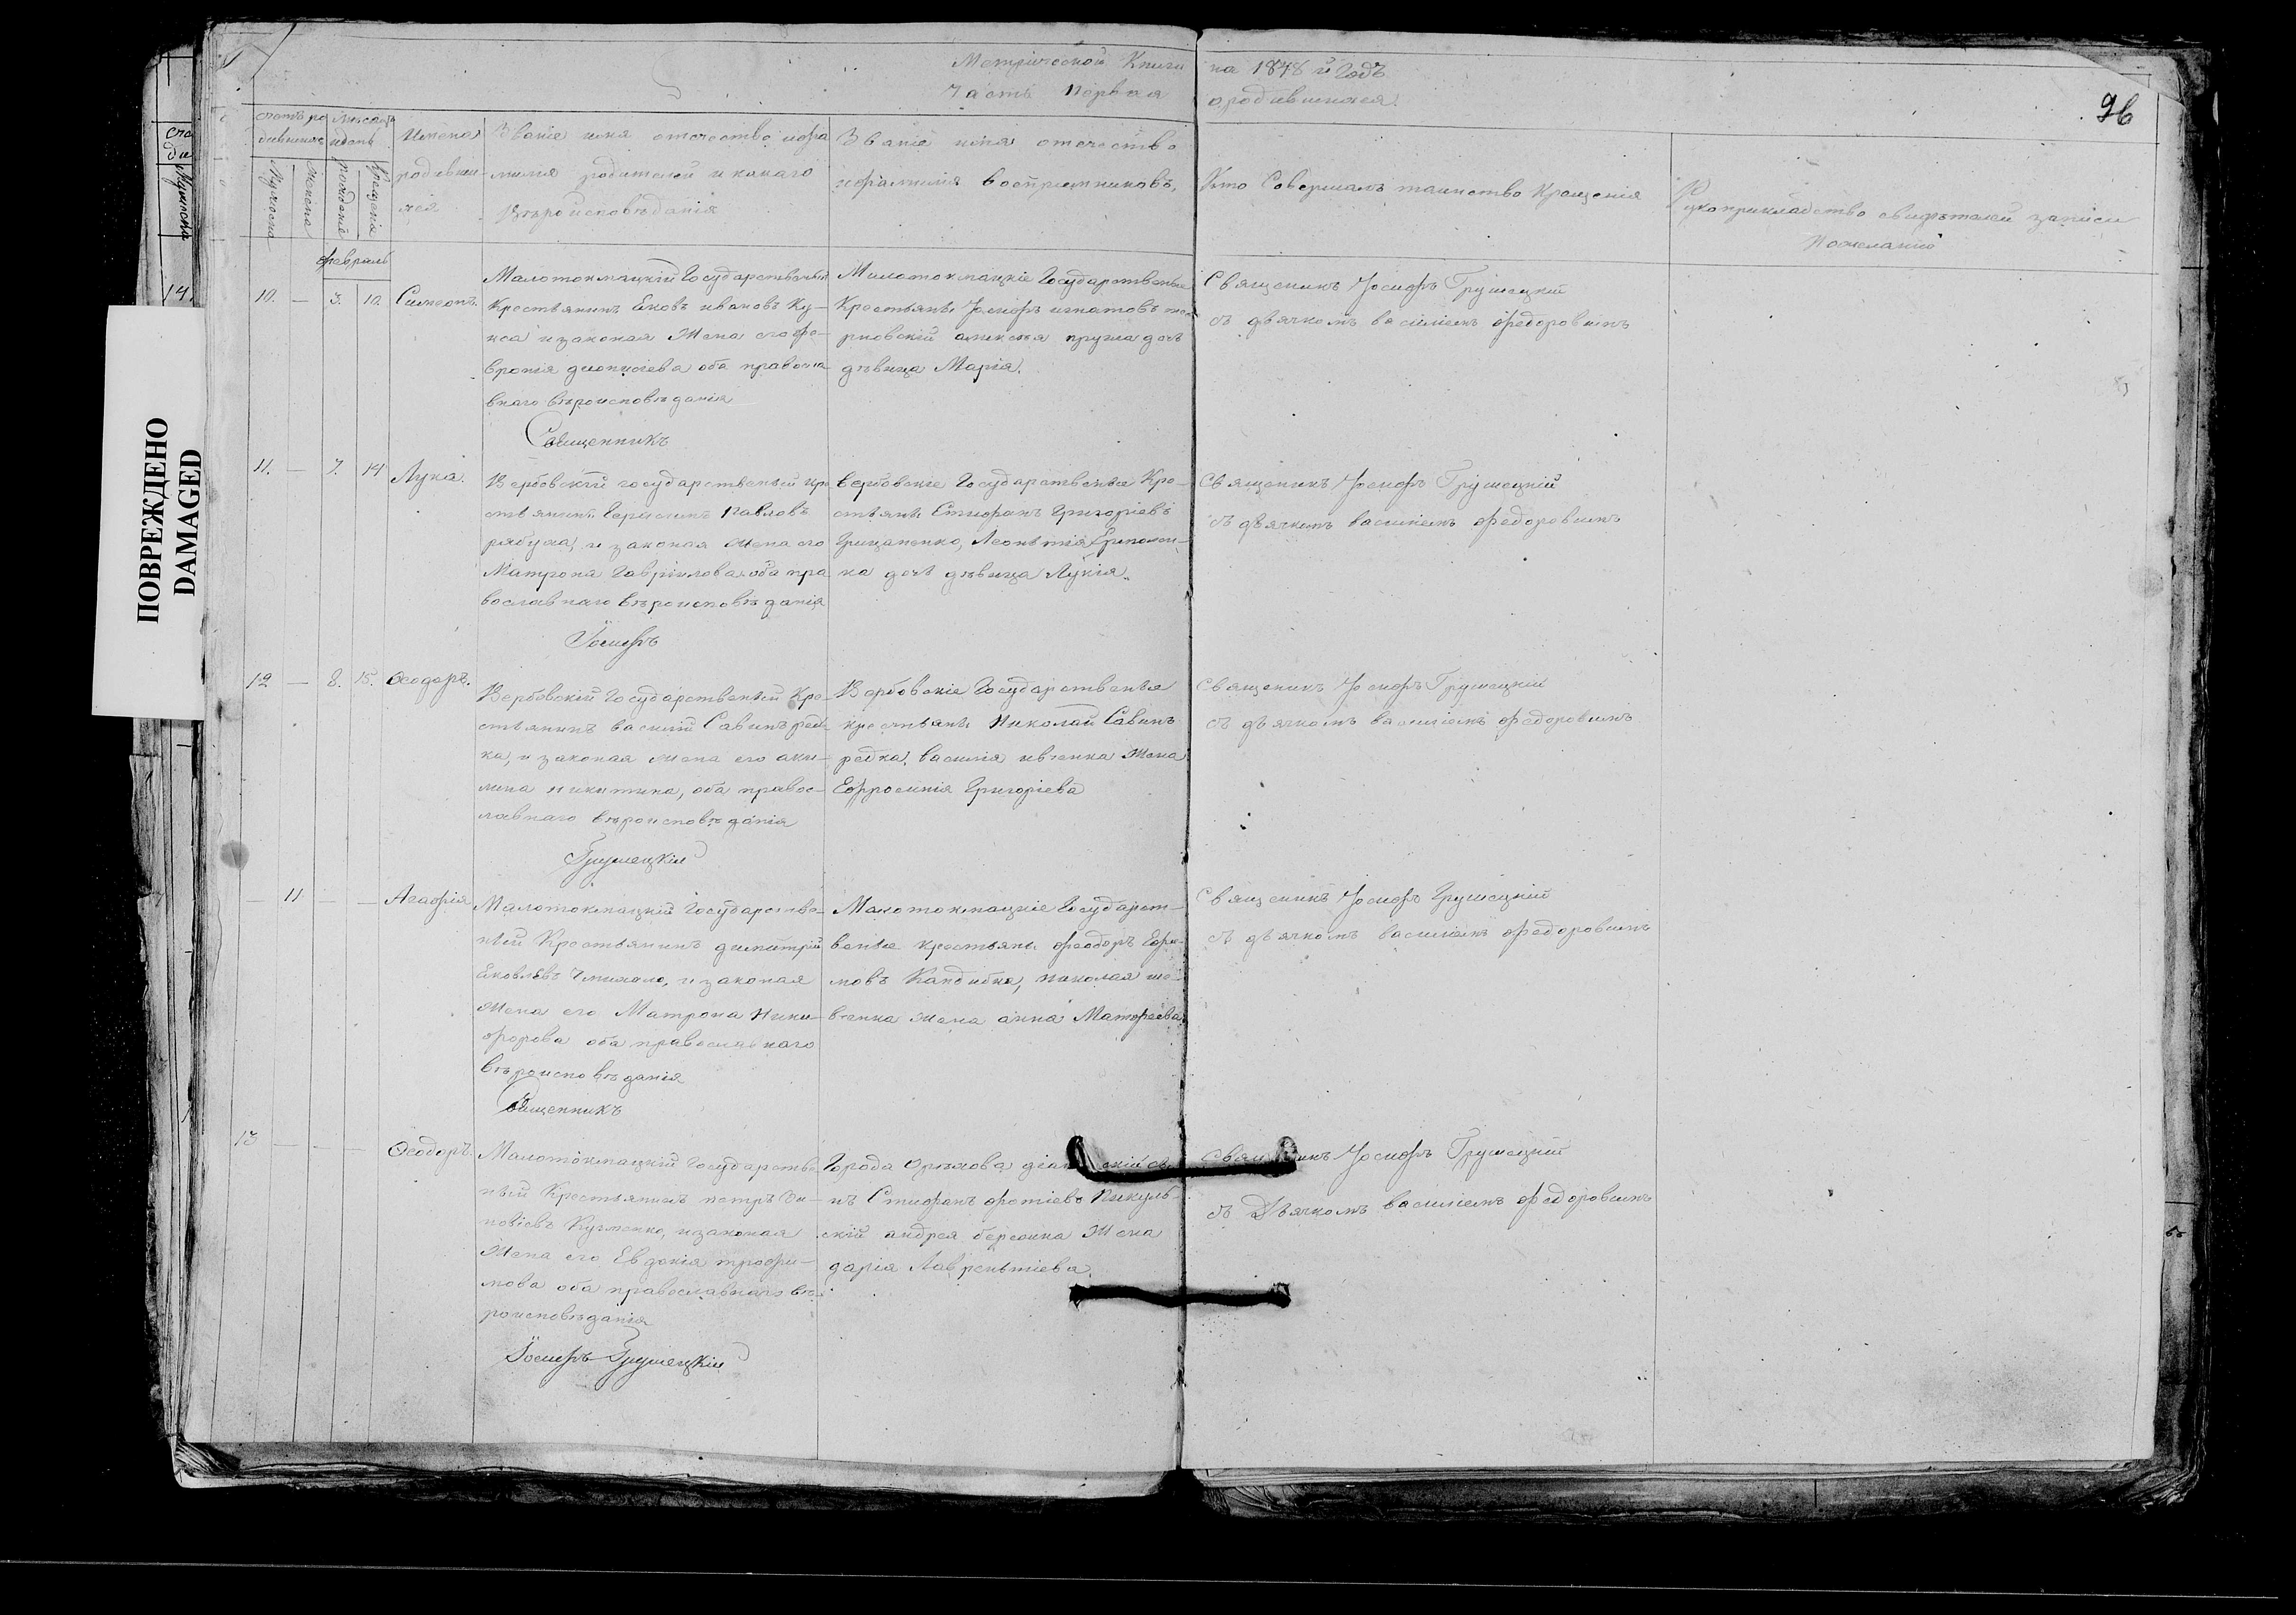 Метрической Книги на 1848 й годъ
Часть Первая о родившихся.
96
счетъ ро мѣсяцъ
дившихся и день
Мужеска
женска
рождения
Крещения
Имена
родивши-
хся
Званіе имя отечество и фа
милия родителей и какаго
Вѣроисповѣданія
Званіе имя отечество
и фамилия воспрiемниковъ.
Кто Совершалъ таинство Крещенія
Рукоприкладство свидѣтелей записи
по желанію
февраль
10. — 3. 10. Симеонъ.
Малотокмацкій Государственый
Крестьянинъ Яковъ ивановъ Ку-
са и законая Жена его фе-
врония дионисіева оба правосла
внаго вѣроисповѣданія
Священникъ
Малотокмацкіе Государственые
Крестьяне Іосифъ игнатовъ
дѣвица Марія.
Священикъ Іосифъ Грушецкій
съ дьячкомъ василіемъ федоровимъ
11. — 7. 14 Лука.
Вербовскій государственый кре
стьянинъ Герасимъ Павловъ
рябуха, и законая жена его
Матрона Гавріилова оба пра
вославнаго вѣроисповѣданія
Іосифъ
Вербовские Государственые Кре-
стьяне Стифанъ Григоріевъ
Грицаненко, Леонтія
ка дочь дѣвица Лукія.
Священикъ Іосифъ Грушецкій
съ дьячкомъ василіемъ федоровимъ
12 — 8. 15. Феодоръ.
Вербовскій Государственый Кре-
стьянинъ василій Савинъ ред-
ка, и законая жена его аки-
лина никитина, оба правос-
лавнаго вѣроисповѣданія
Грушецкій
Вербовскіе Государственые
крестьяне Николай Савинъ
редка, василия ивченка Жена
Ефросинія Григоріева
Священикъ Іосифъ Грушецкій
съ дьячкомъ василіемъ федоровимъ
— 11 — — Агафія
Малотокмацкій Государстве-
ный Крестьянинъ димитрій
Яковлевъ Чмихало, и законая
Жена его Матрона Ники-
форова оба православнаго
вѣроисповѣданія
Священникъ
Малотокмацкіе Государст-
веные крестьяне феодоръ Ефи-
мовъ Кандиба, николая ше-
вченка жена анна Матфеева.
Священикъ Іосифъ Грушецкій
съ дьячкомъ василіемъ федоровимъ
13 — — — Феодоръ.
Малотокмацкій Государстве
ный Крестьянинъ петръ Зи-
новіевъ Кузменко, и законая
Жена его Евдокія трофи-
мова оба православнаго вѣ-
роисповѣданія
Іосифъ Грушецкій
Города Орѣхова
нъ Стифанъ фотіевъ Пикуль-
скій андрея Жена
дарія Лаврентіева.
Іосифъ Грушецкій
съ Дьячкомъ василіемъ федоровимъ
ПОВРЕЖДЕНО
DAMAGED